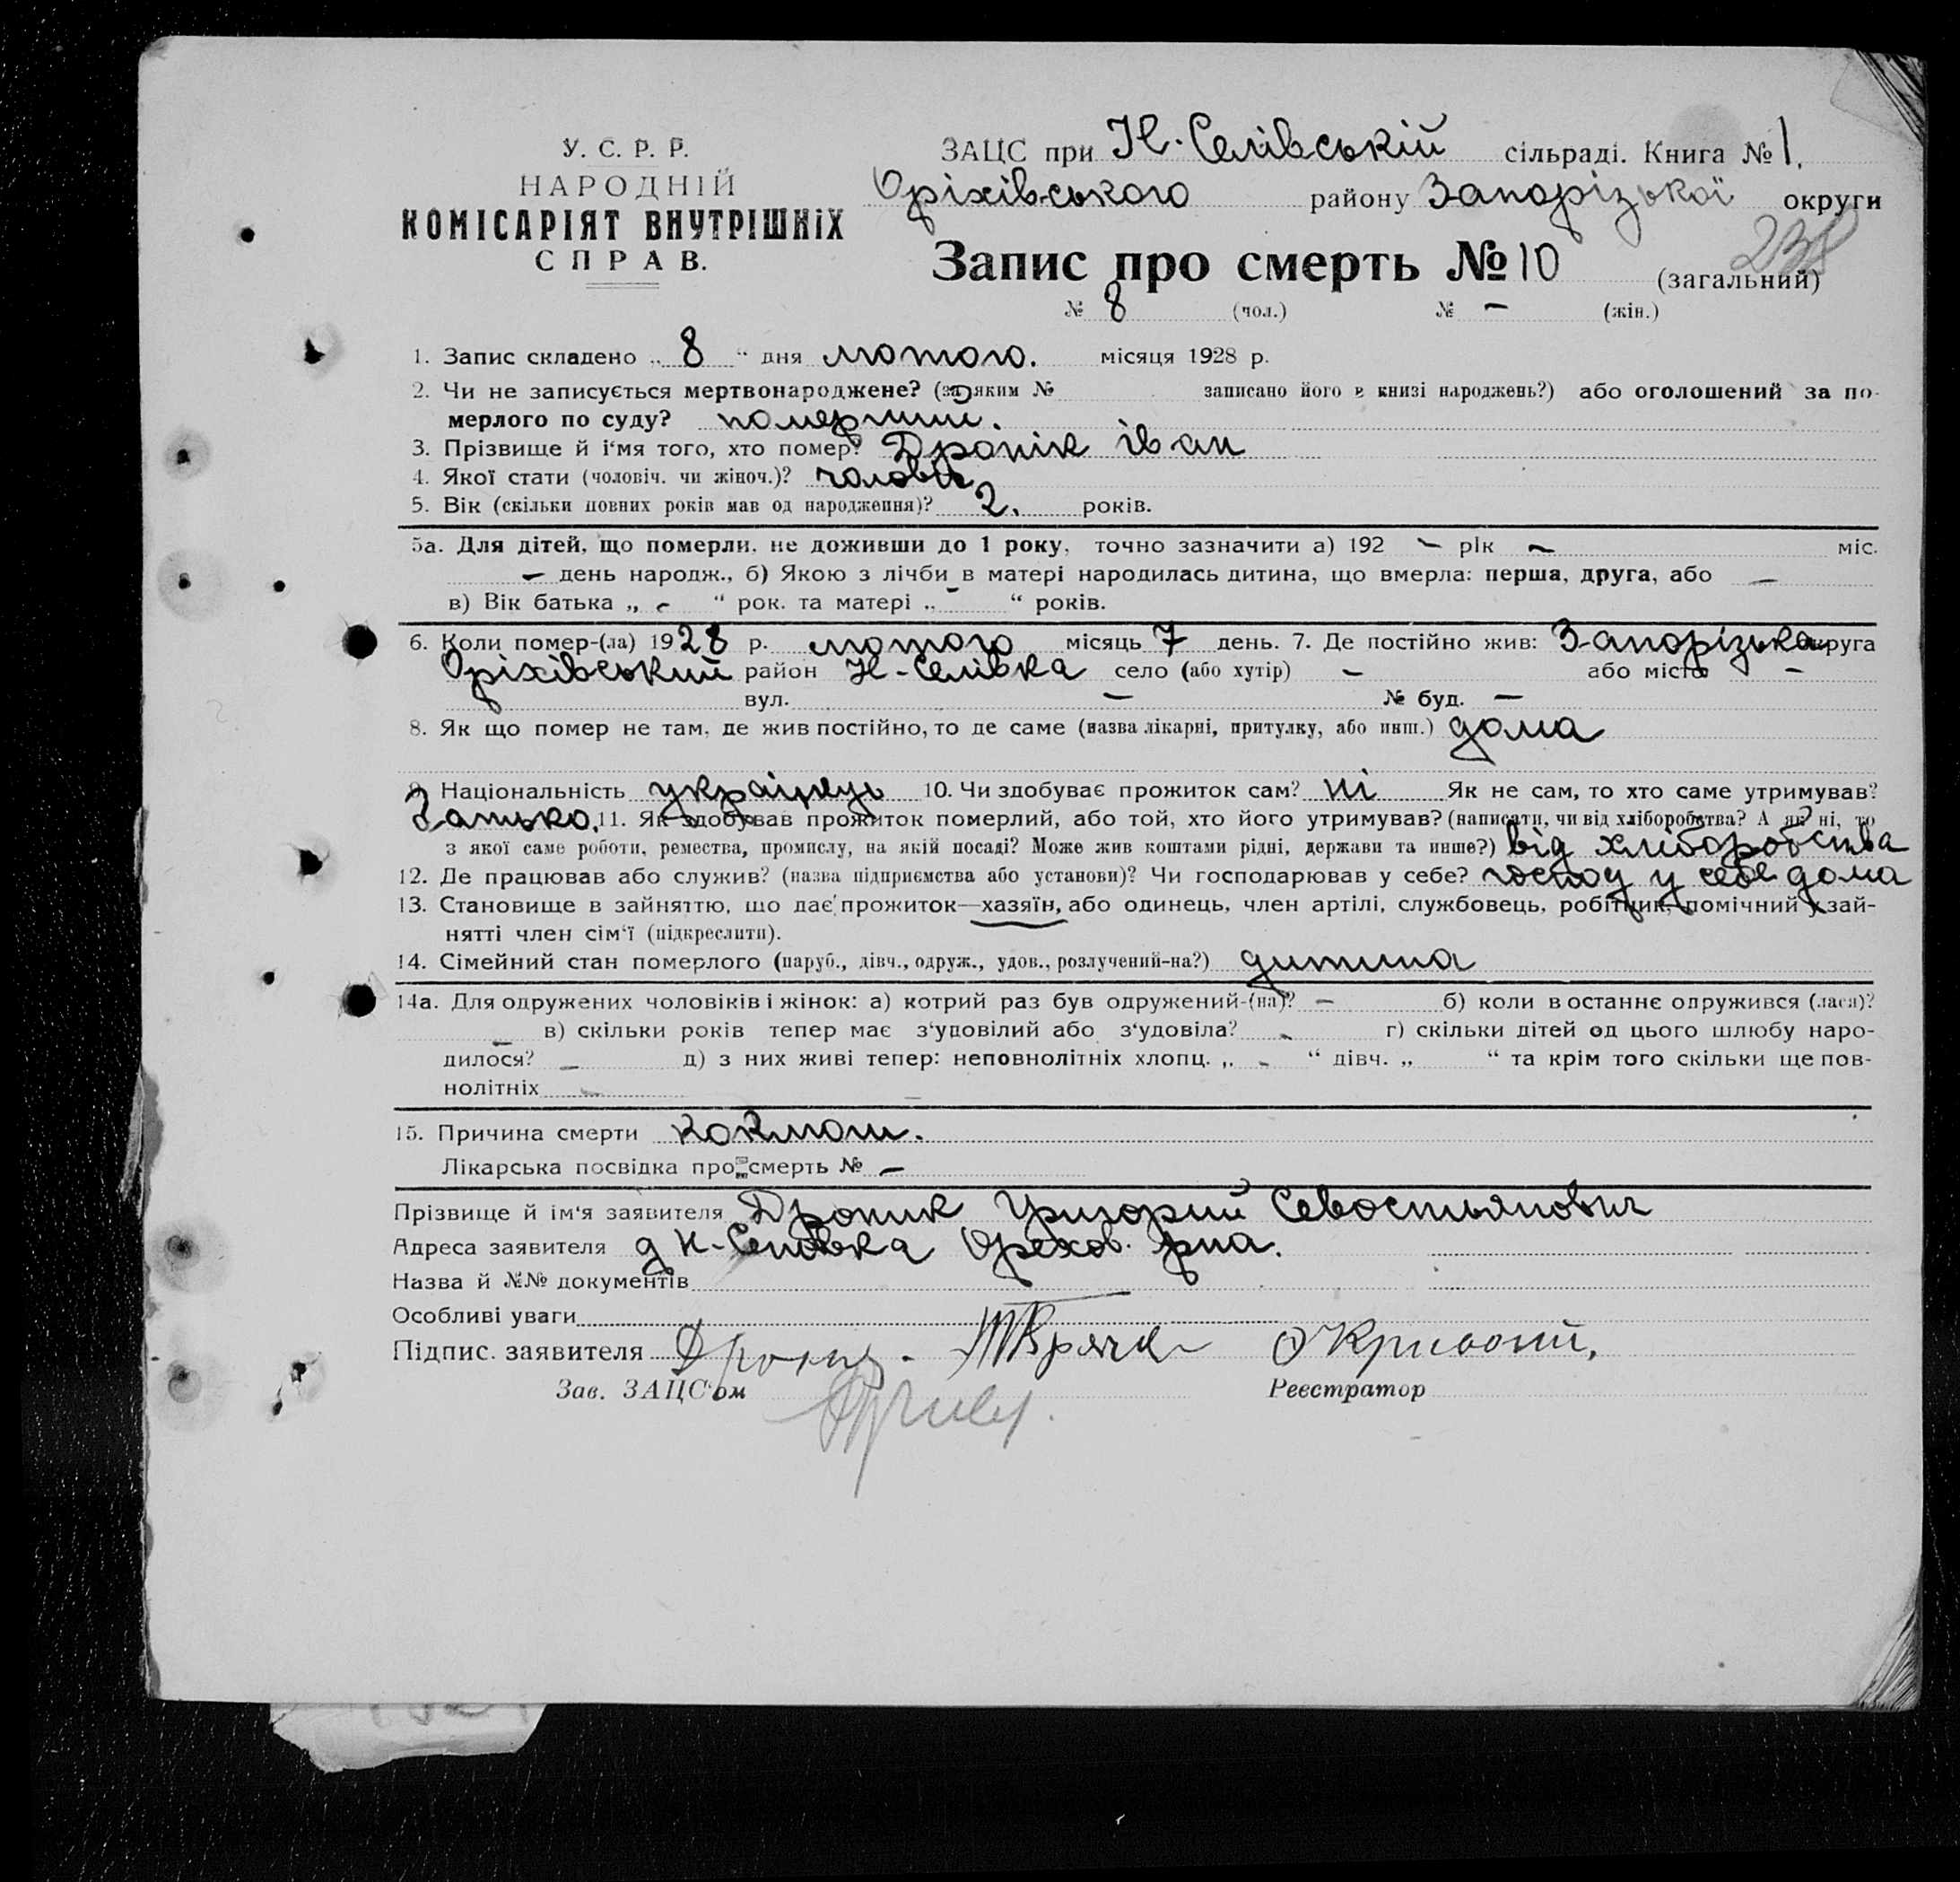 У. С. Р. Р.
НАРОДНІЙ
КОМІСАРІЯТ ВНУТРІШНІХ
СПРАВ.
ЗАЦС при Н.-Селівській сільраді. Книга № 1.
Оріхівського району Запорізької округи
238
Запис про смерть № 10 (загальний)
№ 8 (чол.) № – (жін.)
1. Запис складено „ 8 “ дня лютого. місяця 1928 р.
2. Чи не записується мертвонароджене? (за яким № записано його в книзі народжень?) або оголошений за по-
мерлого по суду? померший.
3. Прізвище й і'мя того, хто помер? Дропік іван
4. Якої стати (чоловіч. чи жіноч.)? чоловік
5. Вік (скільки повних років мав од народження)? 2. років.
5а. Для дітей, що померли, не доживши до 1 року, точно зазначити а) 192 – рік – міс.
– день народж., б) Якою з лічби в матері народилась дитина, що вмерла: перша, друга, або –
в) Вік батька „ – “ рок. та матері „ – “ років.
6. Коли помер-(ла) 1928 р. лютого місяць 7 день. 7. Де постійно жив: Запорізька округа
Оріхівський район Н-Селівка село (або хутір) – або місто –
вул. – № буд. –
8. Як що помер не там, де жив постійно, то де саме (назва лікарні, притулку, або инш.) дома
9. Національність українець 10. Чи здобуває прожиток сам? ні Як не сам, то хто саме утримував?
Батько. 11. Як здобував прожиток померлий, або той, хто його утримував? (написати, чи від хліборобства? А як ні, то
з якої саме роботи, ремества, промислу, на якій посаді? Може жив коштами рідні, держави та инше?) від хліборобства
12. Де працював або служив? (назва підприємства або установи)? Чи господарював у себе? господ у себе дома
13. Становище в зайняттю, що дає прожиток—хазяїн, або одинець, член артілі, службовець, робітник, помічний у зай-
нятті член сім'ї (підкреслити).
14. Сімейний стан померлого (паруб., дівч., одруж., удов., розлучений-на?) дитина
14а. Для одружених чоловіків і жінок: а) котрий раз був одружений-(на)? – б) коли в останнє одружився (лася)?
– в) скільки років тепер має з'удовілий або з'удовіла? – г) скільки дітей од цього шлюбу наро-
дилося? – д) з них живі тепер: неповнолітніх хлопц. „ – “ дівч. „ “ та крім того скільки ще пов-
нолітніх –
15. Причина смерти коклюш.
Лікарська посвідка про смерть № –
Прізвище й ім'я заявителя Дропик Григорий Севостьянович
Адреса заявителя д Н-Селовка Орехов. рна.
Назва й №№ документів
Особливі уваги
Підпис. заявителя
Зав. ЗАЦС'ом Реєстратор